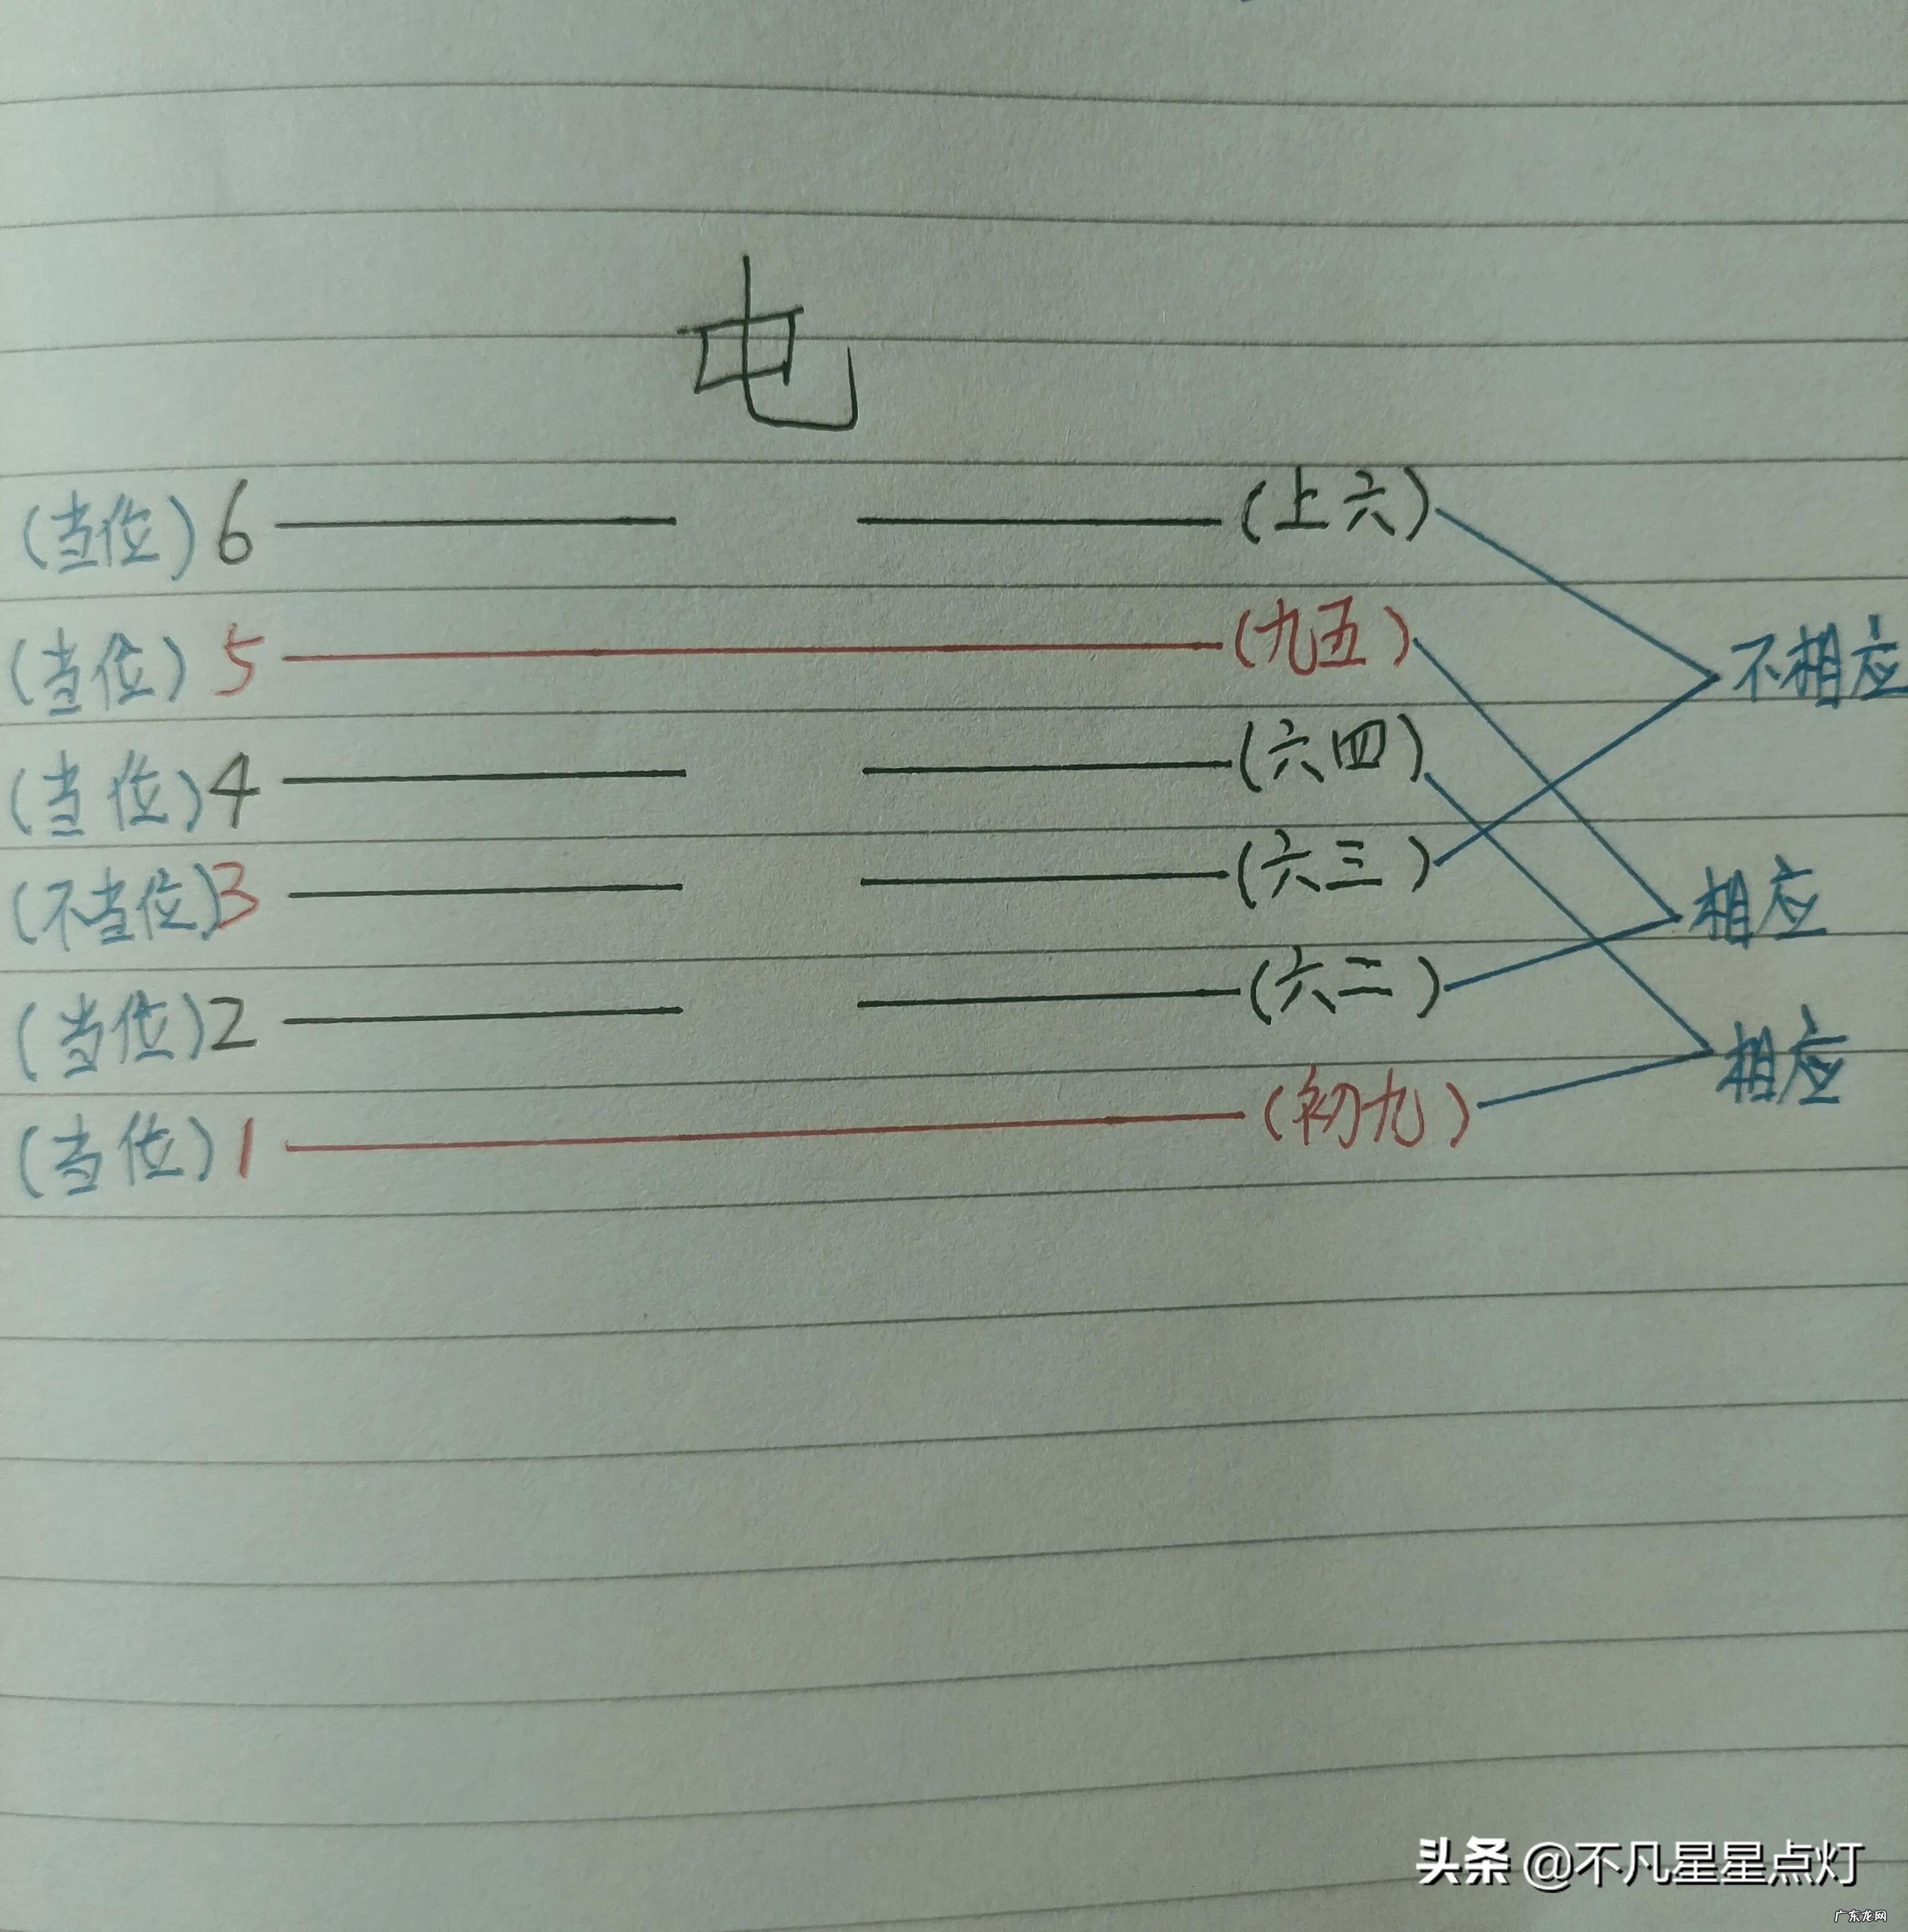 屯
(当位) 6 (上六)
(当位) 5 (九五)
不相应
(当位) 4 (六四)
(不当位) 3 (六三)
相应
(当位) 2 (六二)
相应
(当位) 1 (初九)
头条 @不凡星星点灯
广东龙网